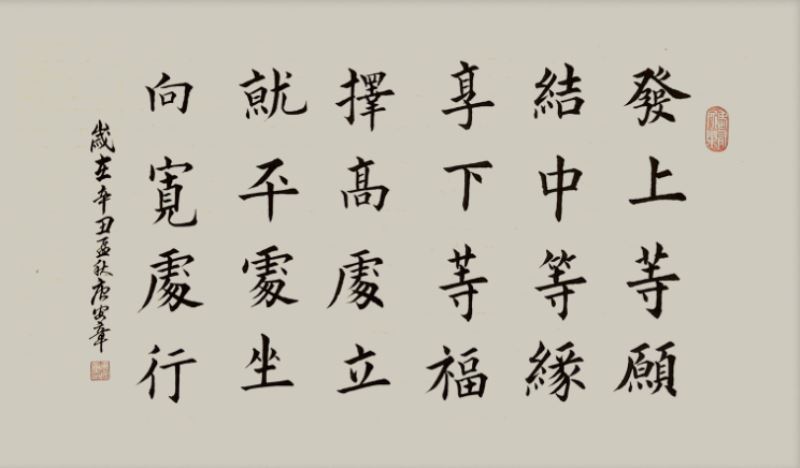 發上等願
結中等緣
享下等福
擇高處立
就平處坐
向寬處行
歲在辛丑孟秋唐安章